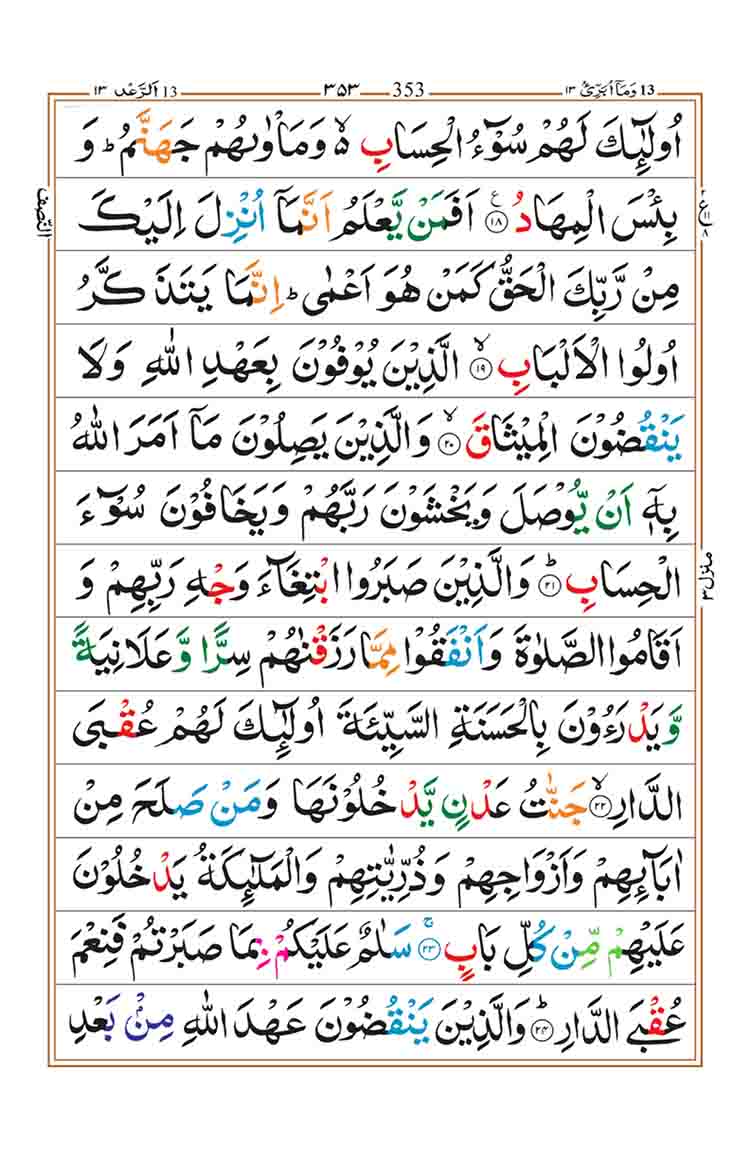 ١٣ اَلرَّعْد 13 ٣٥٣ 353 ١٣ وَمَآ اُبَرِّئُ 13
اُولٰٓئِكَ لَهُمْ سُوْٓءُ الْحِسَابِ ۙ۬ وَمَاْوٰىهُمْ جَهَنَّمُ ؕ وَ
بِئْسَ الْمِهَادُ ﴿۱۸﴾ ع اَفَمَنْ يَّعْلَمُ اَنَّمَاۤ اُنْزِلَ اِلَيْكَ
مِنْ رَّبِّكَ الْحَقُّ كَمَنْ هُوَ اَعْمٰى ؕ اِنَّمَا يَتَذَكَّرُ
اُولُوا الْاَلْبَابِ ﴿۱۹﴾ ۙ الَّذِيْنَ يُوْفُوْنَ بِعَهْدِ اللّٰهِ وَلَا
يَنْقُضُوْنَ الْمِيْثَاقَ ﴿۲۰﴾ ۙ وَالَّذِيْنَ يَصِلُوْنَ مَاۤ اَمَرَ اللّٰهُ
بِهٖۤ اَنْ يُّوْصَلَ وَيَخْشَوْنَ رَبَّهُمْ وَيَخَافُوْنَ سُوْٓءَ
الْحِسَابِ ﴿۲۱﴾ ؕ وَالَّذِيْنَ صَبَرُوا ابْتِغَآءَ وَجْهِ رَبِّهِمْ وَ
اَقَامُوا الصَّلٰوةَ وَاَنْفَقُوْا مِمَّا رَزَقْنٰهُمْ سِرًّا وَّعَلَانِيَةً
وَّيَدْرَءُوْنَ بِالْحَسَنَةِ السَّيِّئَةَ اُولٰٓئِكَ لَهُمْ عُقْبَى
الدَّارِ ﴿۲۲﴾ ۙ جَنّٰتُ عَدْنٍ يَّدْخُلُوْنَهَا وَمَنْ صَلَحَ مِنْ
اٰبَآئِهِمْ وَاَزْوَاجِهِمْ وَذُرِّيّٰتِهِمْ وَالْمَلٰٓئِكَةُ يَدْخُلُوْنَ
عَلَيْهِمْ مِّنْ كُلِّ بَابٍ ﴿۲۳﴾ ۚ سَلٰمٌ عَلَيْكُمْ بِمَا صَبَرْتُمْ فَنِعْمَ
عُقْبَى الدَّارِ ﴿۲۴﴾ ؕ وَالَّذِيْنَ يَنْقُضُوْنَ عَهْدَ اللّٰهِ مِنْۢ بَعْدِ
النّصف
منزل ٣